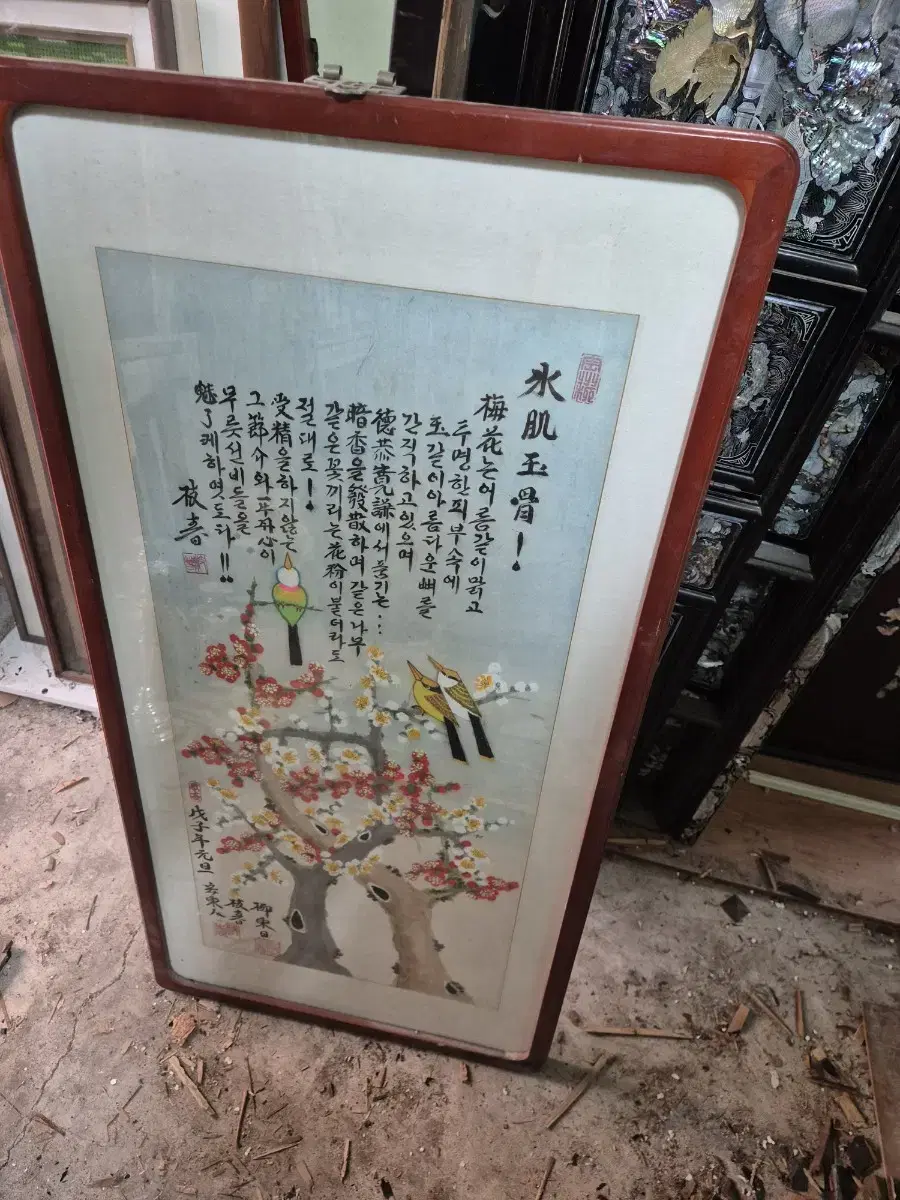 氷肌玉骨!
梅花는 어름같이 맑고
투명한 피부속에
玉같이 아름다운 뼈를
간직하고 있으며
德恭寬謙에서 풍기는...
暗香을 發散하며 같은 나무
같은 꽃끼리는 花粉이 붙더라도
절대로!
受精을 하지 않는
그 節介와 平和心이
무릇 선비들을
魅了케 하엿도다!!
枝春
戊子年元旦
柳東日
枝春